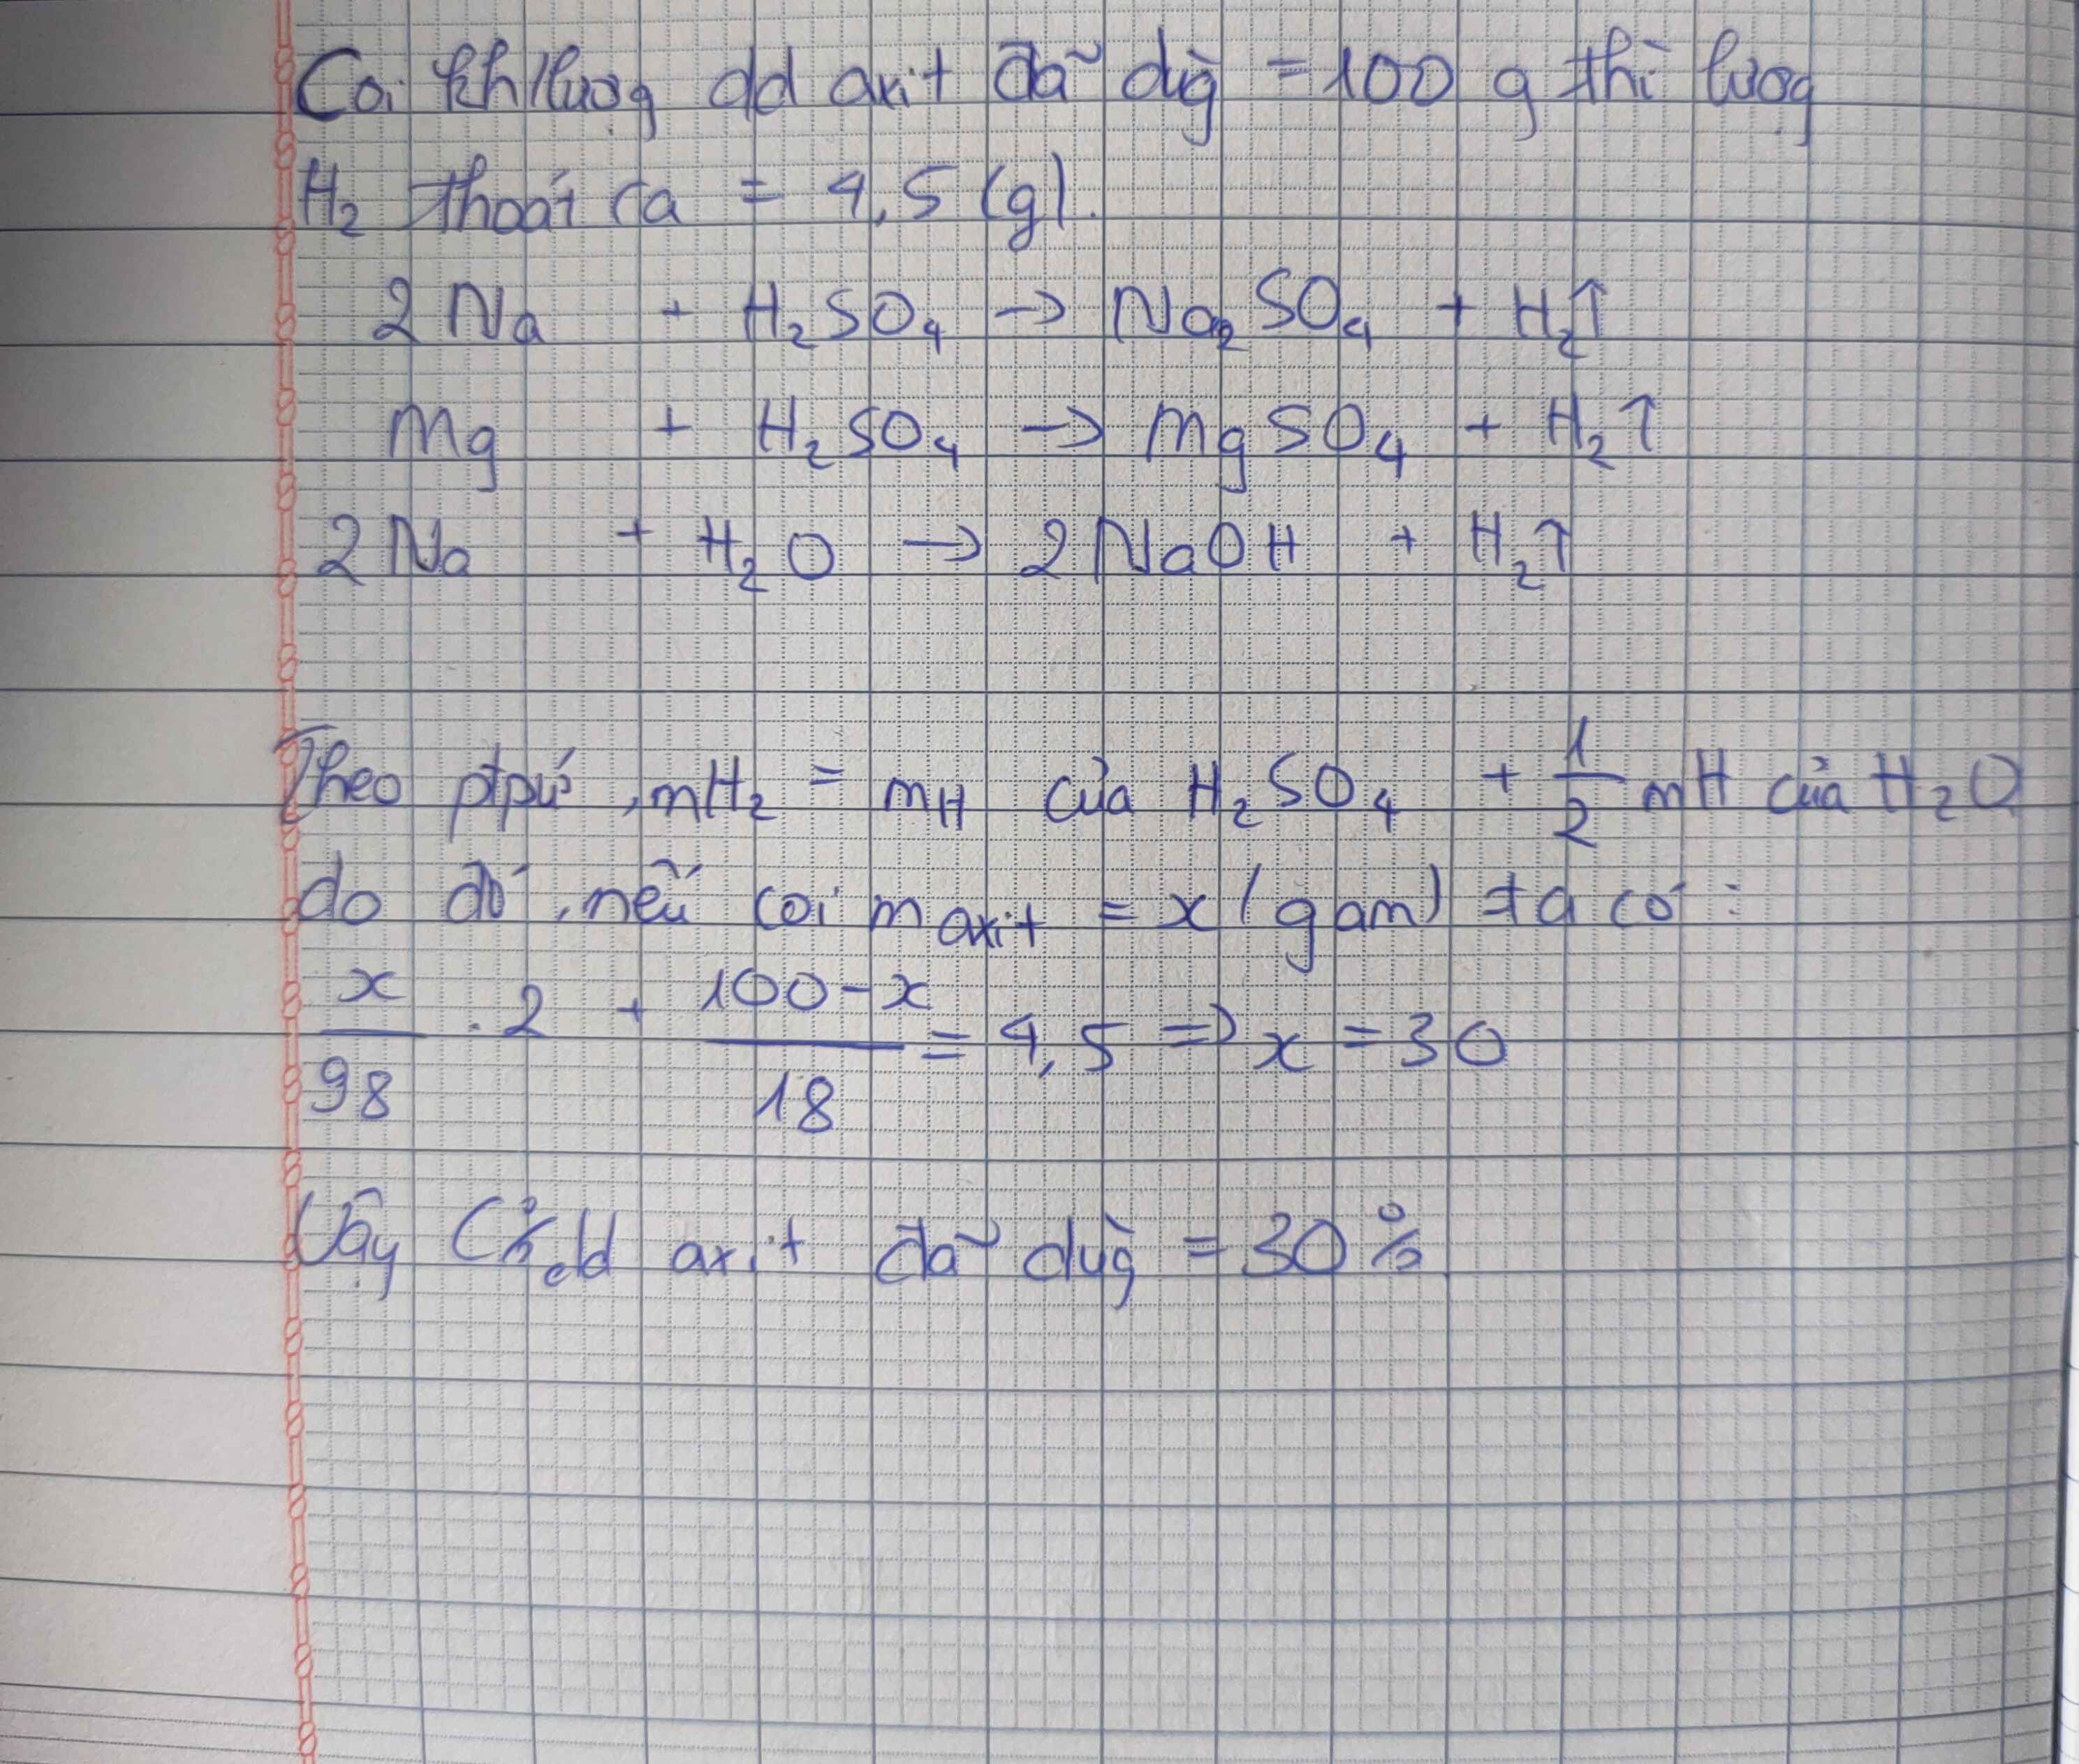 Coi kh/lượg dd axit đã dùg = 100 g thì lượg
H₂ thoát ra = 4,5 (g).
2 Na + H₂SO₄ → Na₂SO₄ + H₂↑
Mg + H₂SO₄ → MgSO₄ + H₂↑
2 Na + H₂O → 2 NaOH + H₂↑
Theo ptpứ, mH₂ = mH của H₂SO₄ + 1/2 mH của H₂O
do đó, nếu coi m axit = x (gam) ta có :
x/98 . 2 + 100-x/18 = 4,5 => x = 30
Vậy C% dd axit đã dùg = 30 %